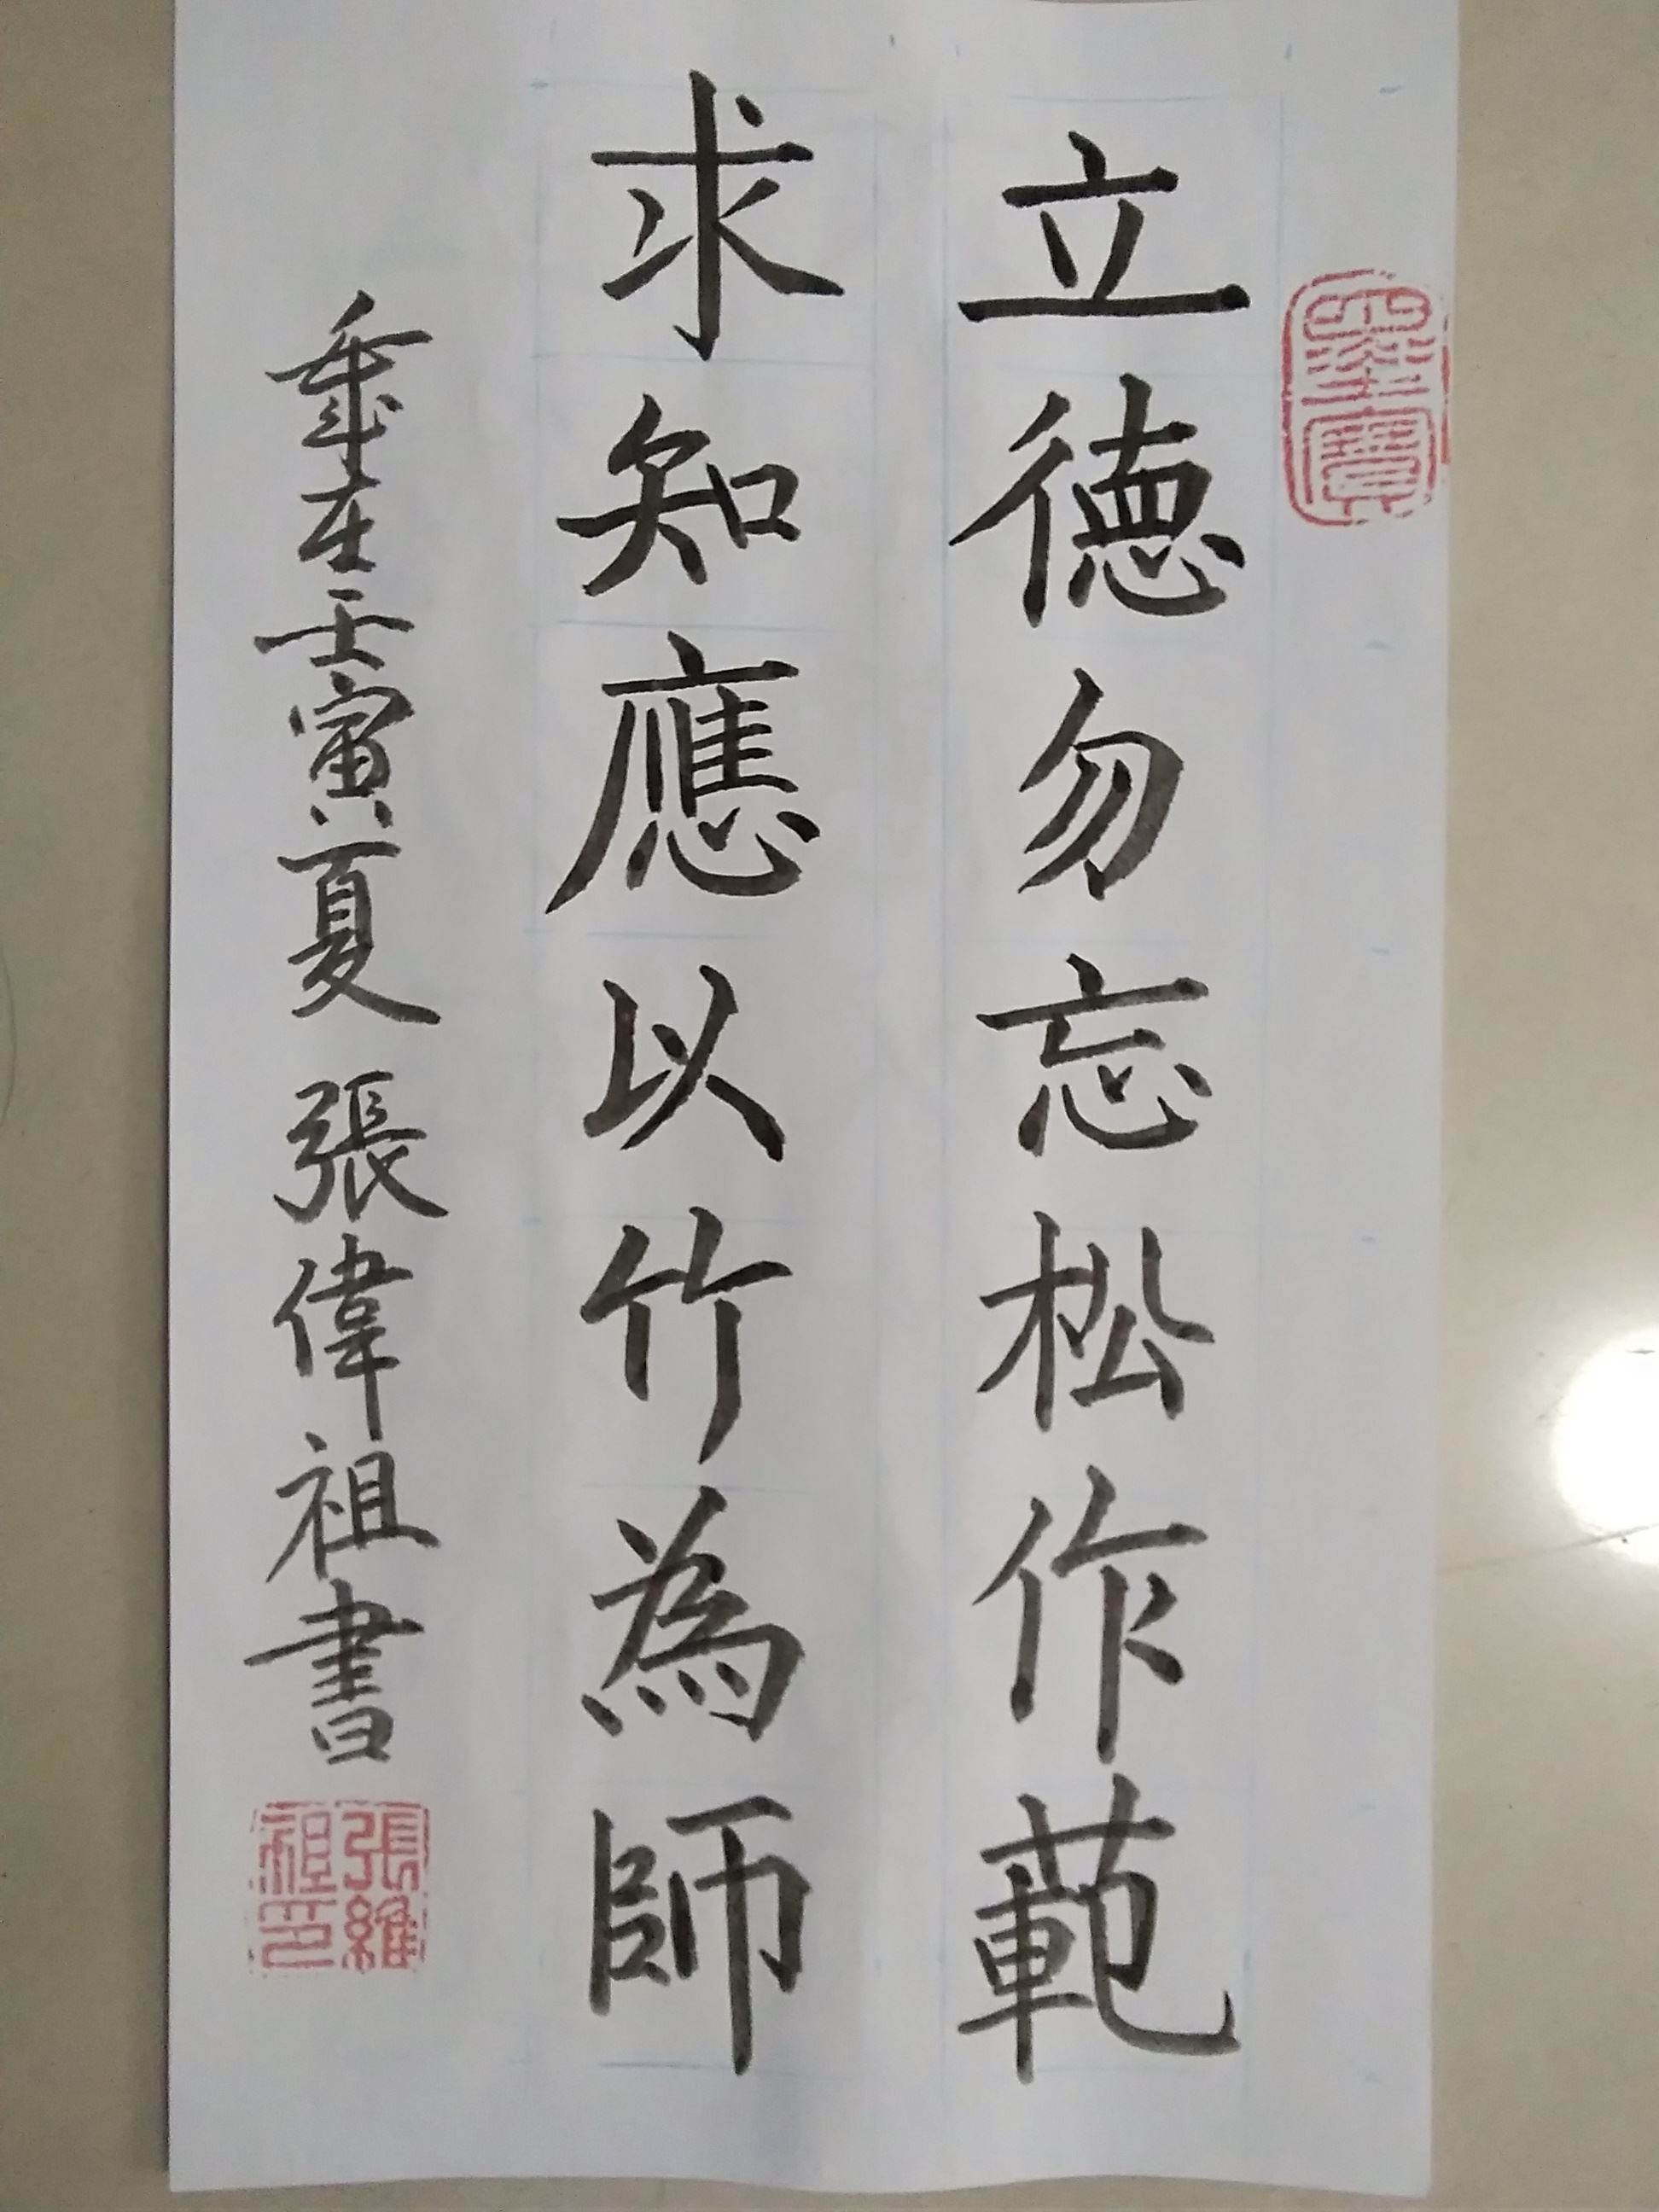 墨寶
立德勿忘松作範
求知應以竹為師
歲在壬寅夏 張偉祖書
張維祖印